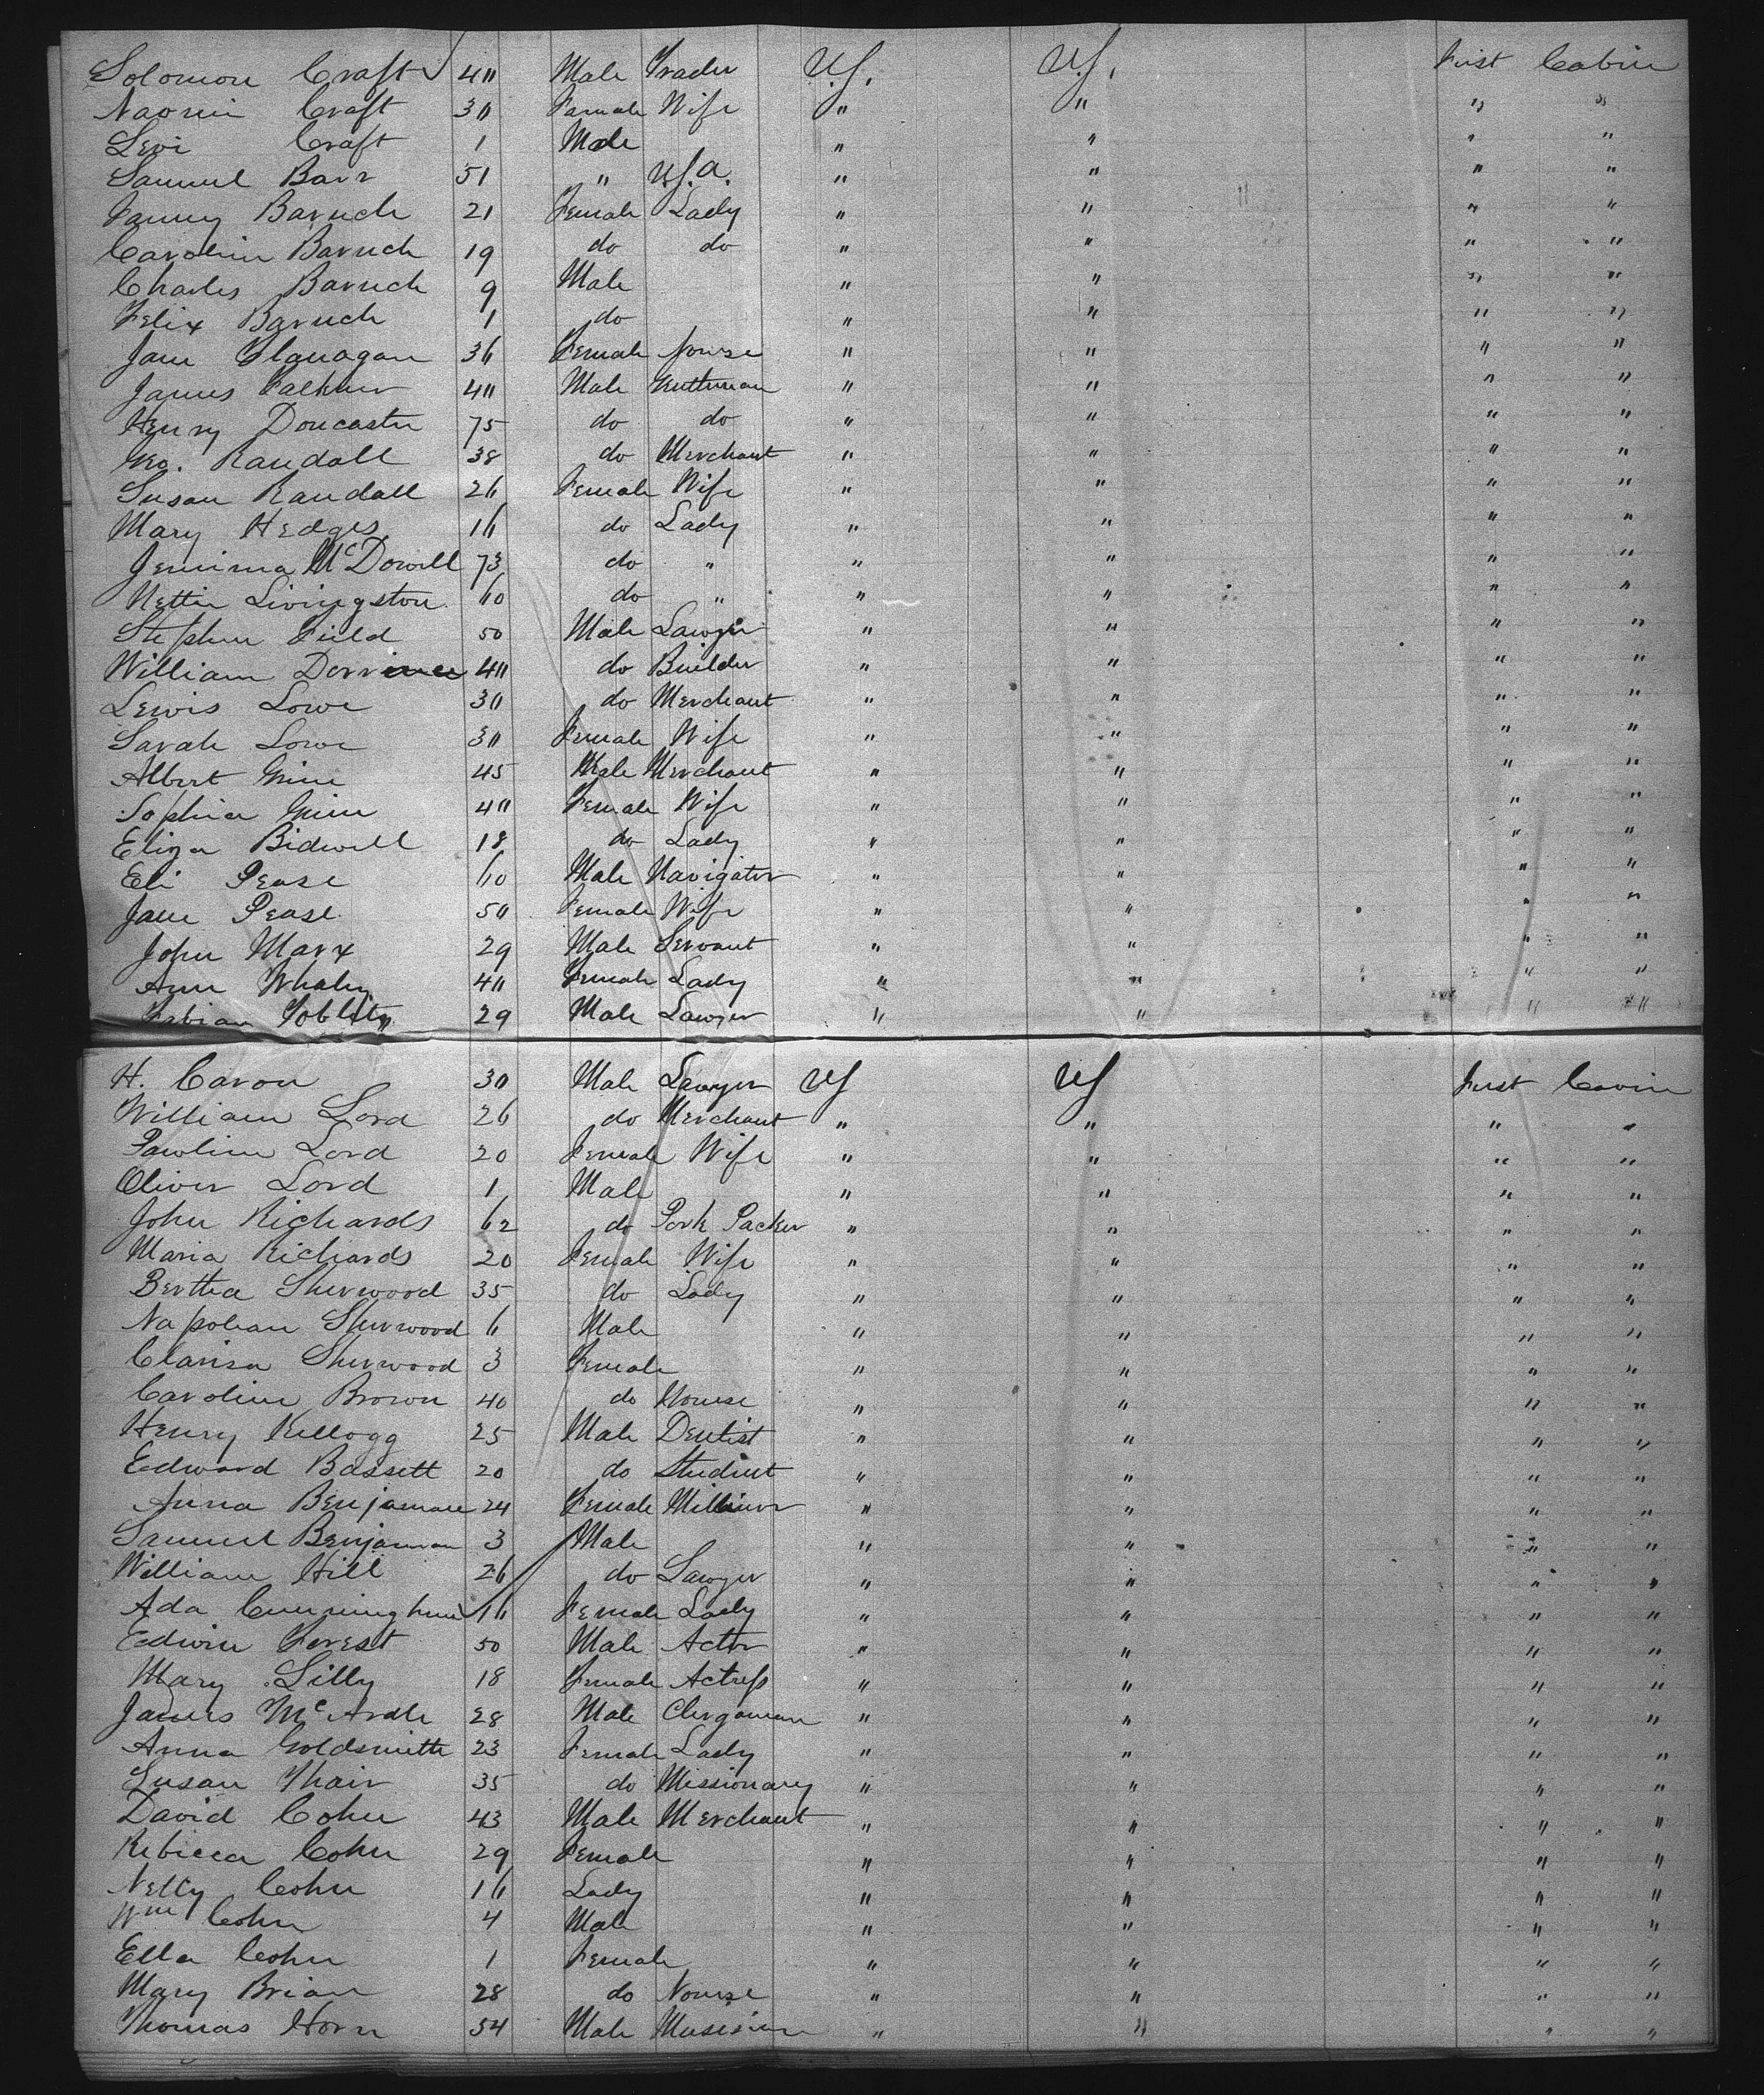 Solomon Craft 40 Male Trader U.S. U.S. First Cabin
Naomi Craft 30 Female Wife " " " "
Levi Craft 1 Male " " " "
Samuel Barr 51 " U.S.A. " " " "
Fanny Baruch 21 Female Lady " " " "
Carolin Baruch 19 do do " " " "
Charles Baruch 9 Male " " " "
Felix Baruch 1 do " " " "
Jane Flanagan 36 Female Nourse " " " "
James Falkner 40 Male Gentleman " " " "
Henry Doncaster 75 do do " " " "
Geo. Randall 38 do Merchant " " " "
Susan Randall 26 Female Wife " " " "
Mary Hedges 16 do Lady " " " "
Jemima McDowell 73 do " " " " "
Nettie Livingston 60 do " " " " "
Stephen Field 50 Male Lawyer " " " "
William Dorrince 40 do Builder " " " "
Lewis Lowe 30 do Merchant " " " "
Sarah Lowe 30 Female Wife " " " "
Albert 45 Male Merchant " " " "
Sophia 40 Female Wife " " " "
Eliza Bidwell 18 do Lady " " " "
Eli Pease 60 Male Navigator " " " "
Jane Pease 50 Female Wife " " " "
John Marx 29 Male Servant " " " "
Ann Whaley 40 Female Lady " " " "
Fabian 29 Male Lawyer " " " "
H. Caron 30 Male Lawyer US US First Cavin
William Lord 26 do Merchant " " " "
Pawlin Lord 20 Female Wife " " " "
Oliver Lord 1 Male " " " "
John Richards 62 do Pork Packer " " " "
Maria Richards 20 Female Wife " " " "
Bertha Sherwood 35 do Lady " " " "
Napolean Sherwood 6 Male " " " "
Clarisa Sherwood 3 Female " " " "
Carolin Brown 40 do Nourse " " " "
Henry Kellogg 25 Male Dentist " " " "
Edward Bassett 20 do Student " " " "
Anna Benjaman 24 Female Milliner " " " "
Samuel Benjaman 3 Male " " " "
William Hill 26 do Lawyer " " " "
Ada Cunningham 16 Female Lady " " " "
Edwin Forest 50 Male Actor " " " "
Mary Lilly 18 Female Actress " " " "
James McArdle 28 Male Clergaman " " " "
Anna Goldsmith 23 Female Lady " " " "
Susan Thair 35 do Missionary " " " "
David Cohn 43 Male Merchant " " " "
Rebicca Cohn 29 Female " " " "
Nelly Cohn 16 Lady " " " "
Wm Cohn 4 Male " " " "
Ella Cohn 1 Female " " " "
Mary Brian 28 do Nourse " " " "
Thomas Horn 54 Male Musisian " " " "